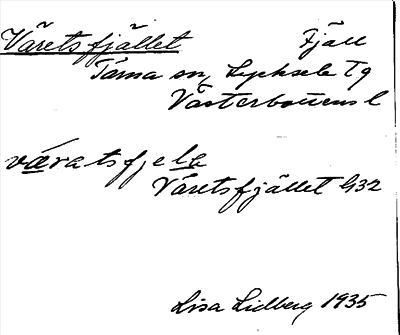 Våretsfjället Fjäll
Tärna sn, Lycksele Tg
Västerbottens l
våratsfjelə
Våretsfjället G32
Lisa Lidberg 1935